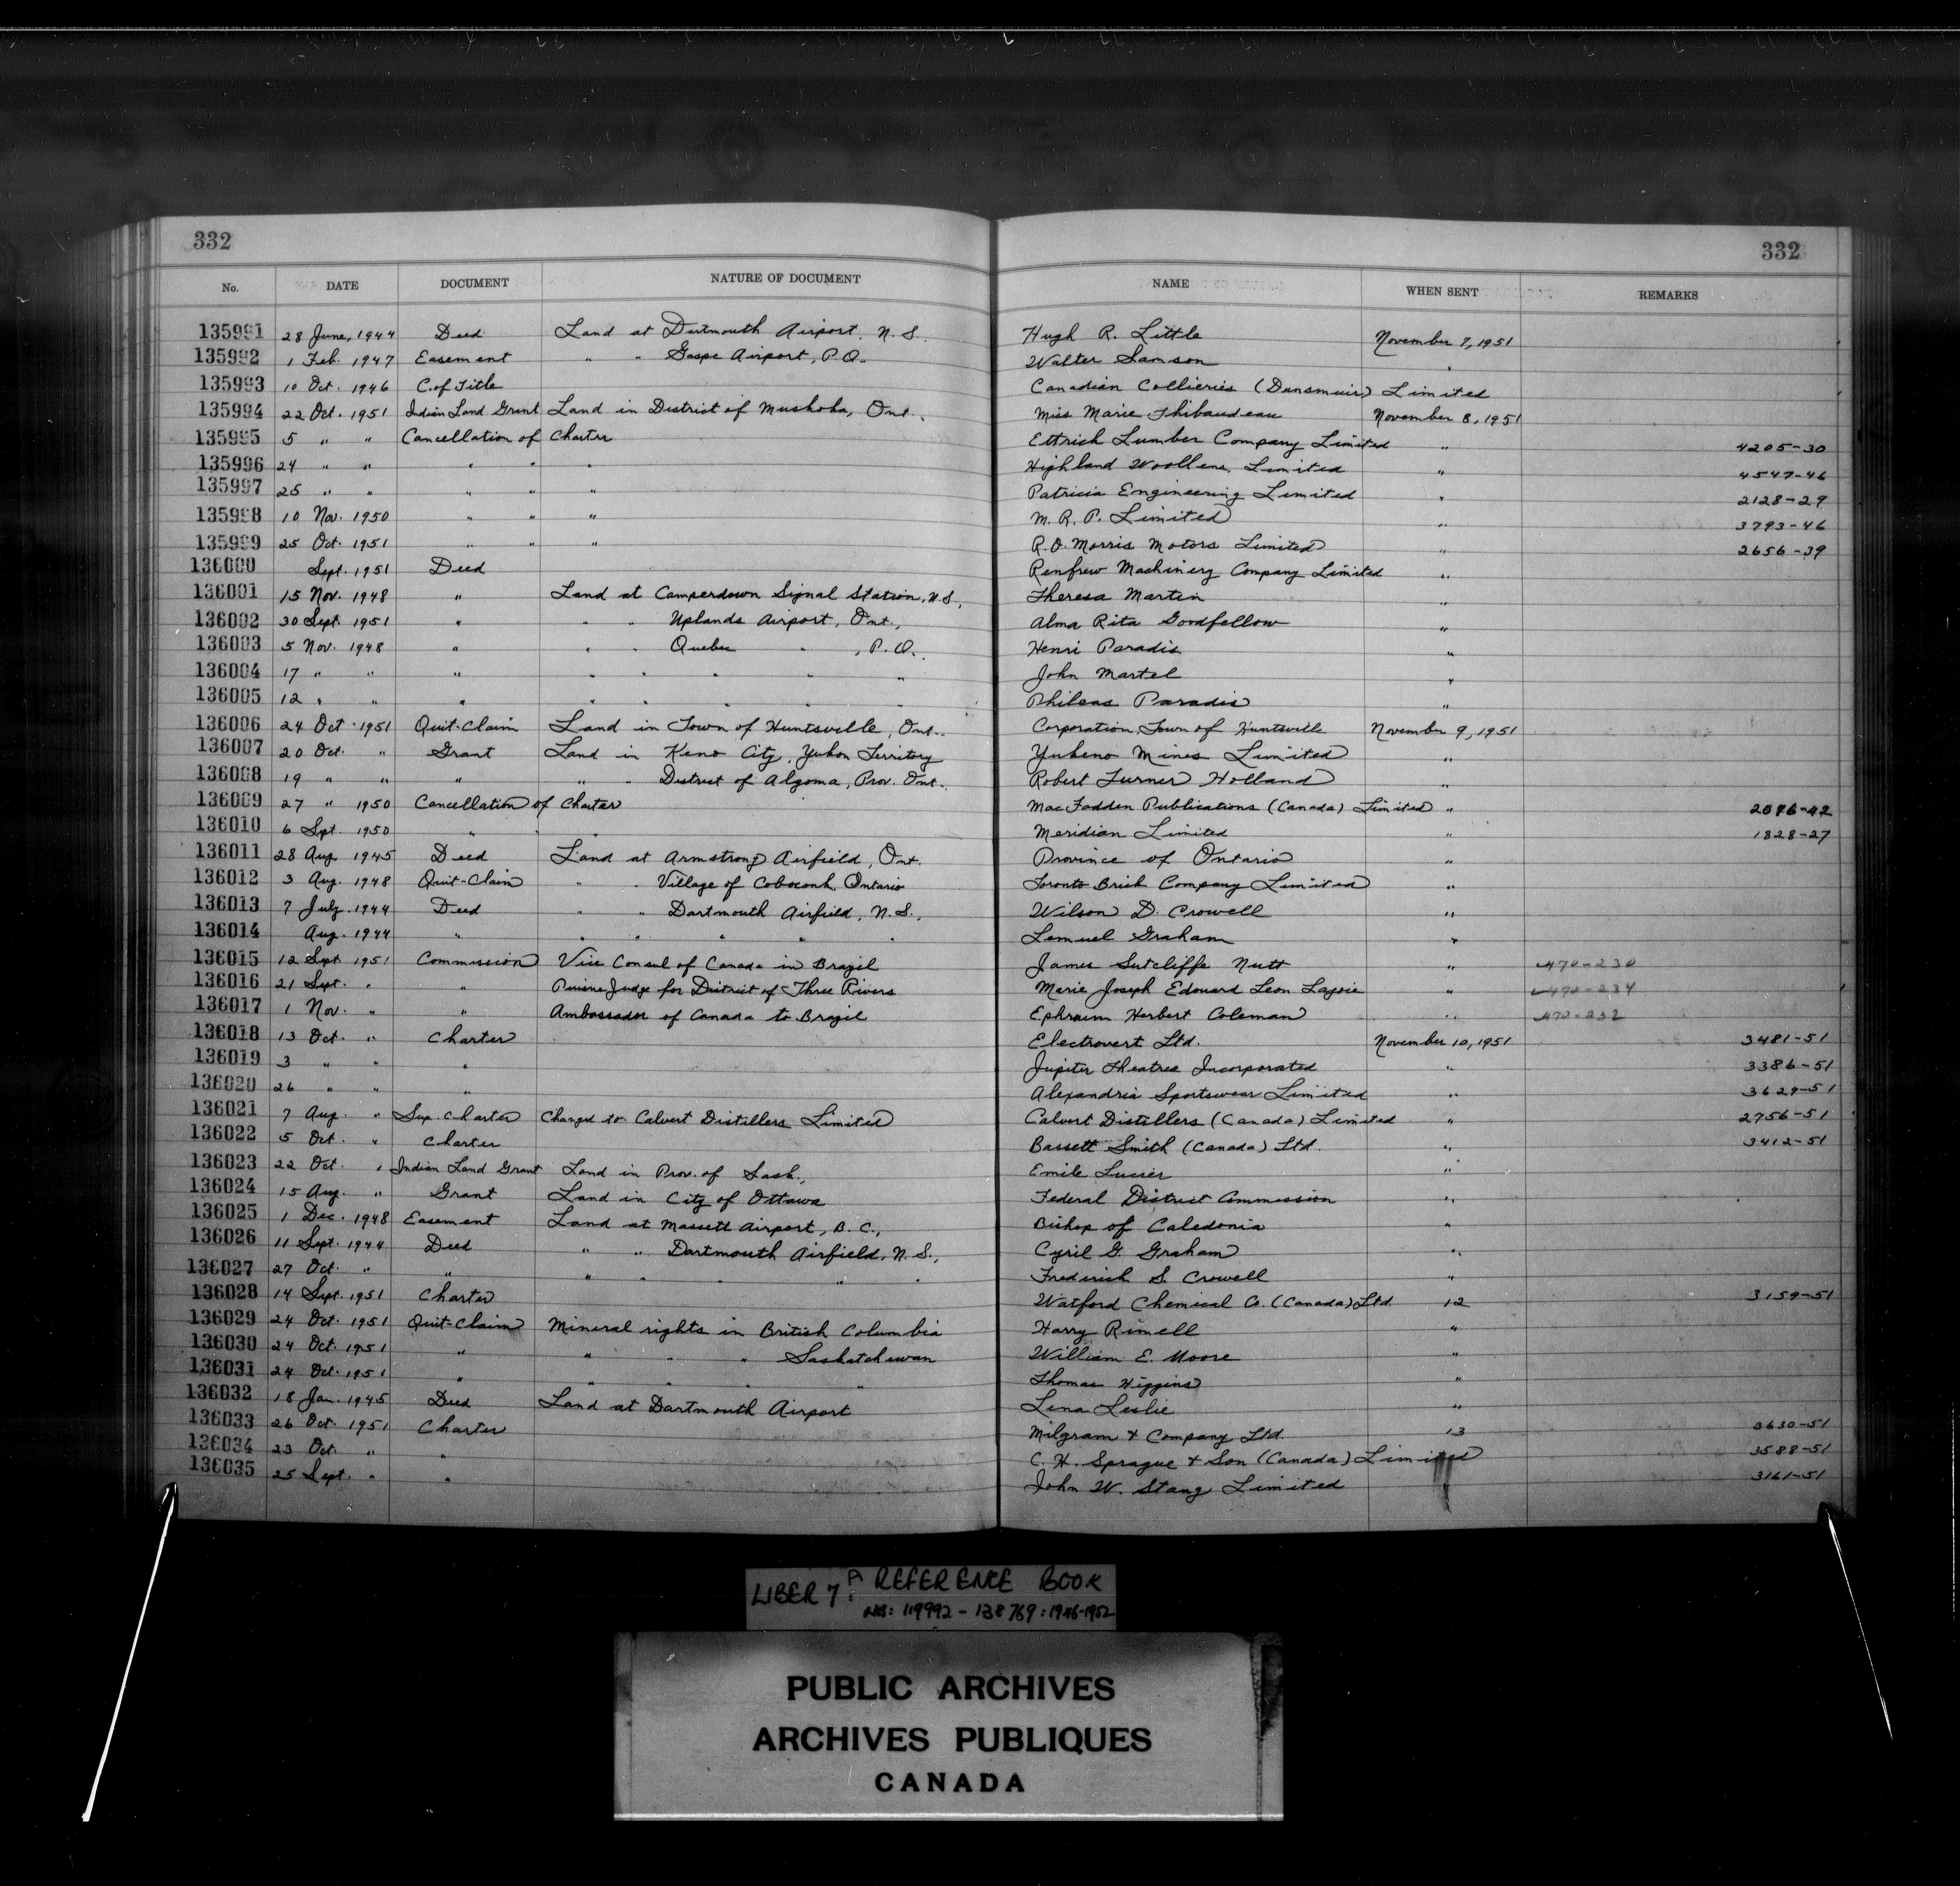 332 332
No. DATE DOCUMENT NATURE OF DOCUMENT NAME WHEN SENT REMARKS
135991 28 June, 1944 Deed Land at Dartmouth Airport, N.S. Hugh R. Little November 7, 1951
135992 1 Feb. 1947 Easement " " Gaspe Airport, P.Q. Walter Samson "
135993 10 Oct. 1946 C. of Title Canadian Collieries (Dunsmuir) Limited
135994 22 Oct. 1951 Indian Land Grant Land in District of Muskoka, Ont., Miss Marie Thibaudeau November 8, 1951
135995 5 " " Cancellation of Charter Ettrick Lumber Company Limited " 4205-30
135996 24 " " " " " Highland Woollens, Limited " 4547-46
135997 25 " " " " " Patricia Engineering Limited " 2128-29
135998 10 Nov. 1950 " " " M. R. P. Limited " 3793-46
135999 25 Oct. 1951 " " " R.O. Morris Motors Limited " 2656-39
136000 Sept. 1951 Deed Renfrew Machinery Company Limited "
136001 15 Nov. 1948 " Land at Camperdown Signal Station, N.S., Theresa Martin "
136002 30 Sept. 1951 " " " Uplands Airport, Ont., Alma Rita Goodfellow "
136003 5 Nov. 1948 " " " Quebec " , P.Q., Henri Paradis "
136004 17 " " " " " " " " John Martel "
136005 12 " " " " " " " " Phileas Paradis "
136006 24 Oct. 1951 Quit-Claim Land in Town of Huntsville, Ont.. Corporation, Town of Huntsville November 9, 1951
136007 20 Oct. " Grant Land in Keno City, Yukon Territory Yukeno Mines Limited "
136008 19 " " " " " District of Algoma, Prov. Ont.. Robert Turner Holland "
136009 27 " 1950 Cancellation of Charter MacFadden Publications (Canada) Limited " 2076-42
136010 6 Sept. 1950 " " " Meridian Limited " 1828-27
136011 28 Aug. 1945 Deed Land at Armstrong Airfield, Ont. Province of Ontario "
136012 3 Aug. 1948 Quit-Claim " " Village of Coboconk, Ontario Toronto Brick Company Limited "
136013 7 July 1944 Deed " " Dartmouth Airfield, N.S., Wilson D. Crowell "
136014 Aug. 1944 " " " " " " Lemuel Graham "
136015 12 Sept. 1951 Commission Vice Consul of Canada in Brazil James Sutcliffe Nutt " 470-230
136016 21 Sept. " " Puisne Judge for District of Three Rivers Marie Joseph Edouard Leon Lajoie " 470-234
136017 1 Nov. " " Ambassador of Canada to Brazil Ephraim Herbert Coleman " 470-232
136018 13 Oct. " Charter Electrovert Ltd. November 10, 1951 3481-51
136019 3 " " " Jupiter Theatres Incorporated " 3386-51
136020 26 " " " Alexandria Sportswear Limited " 3629-51
136021 7 Aug. " Sup. Charter Changed to Calvert Distillers Limited Calvert Distillers (Canada) Limited " 2756-51
136022 5 Oct. " Charter Bassett Smith (Canada) Ltd. " 3412-51
136023 22 Oct. " Indian Land Grant Land in Prov. of Sask., Emile Lucier "
136024 15 Aug. " Grant Land in City of Ottawa Federal District Commission "
136025 1 Dec. 1948 Easement Land at Massett Airport, B.C., Bishop of Caledonia "
136026 11 Sept. 1944 Deed " " Dartmouth Airfield, N.S., Cyril G. Graham "
136027 27 Oct. " " " " " " " Frederick S. Crowell "
136028 14 Sept. 1951 Charter Watford Chemical Co. (Canada) Ltd. 12 3159-51
136029 24 Oct. 1951 Quit-Claim Mineral rights in British Columbia Harry Rimell "
136030 24 Oct. 1951 " " " " Saskatchewan William E. Moore "
136031 24 Oct. 1951 " " " " " Thomas Higgins "
136032 18 Jan. 1945 Deed Land at Dartmouth Airport Lena Leslie "
136033 26 Oct. 1951 Charter Milgram & Company Ltd. 13 3630-51
136034 23 Oct. " " C. H. Sprague & Son (Canada) Limited 3588-51
136035 25 Sept. " " John W. Stang Limited 3161-51
LIBER 7A: REFERENCE BOOK
NOS: 119992 - 138769: 1946-1952
PUBLIC ARCHIVES
ARCHIVES PUBLIQUES
CANADA